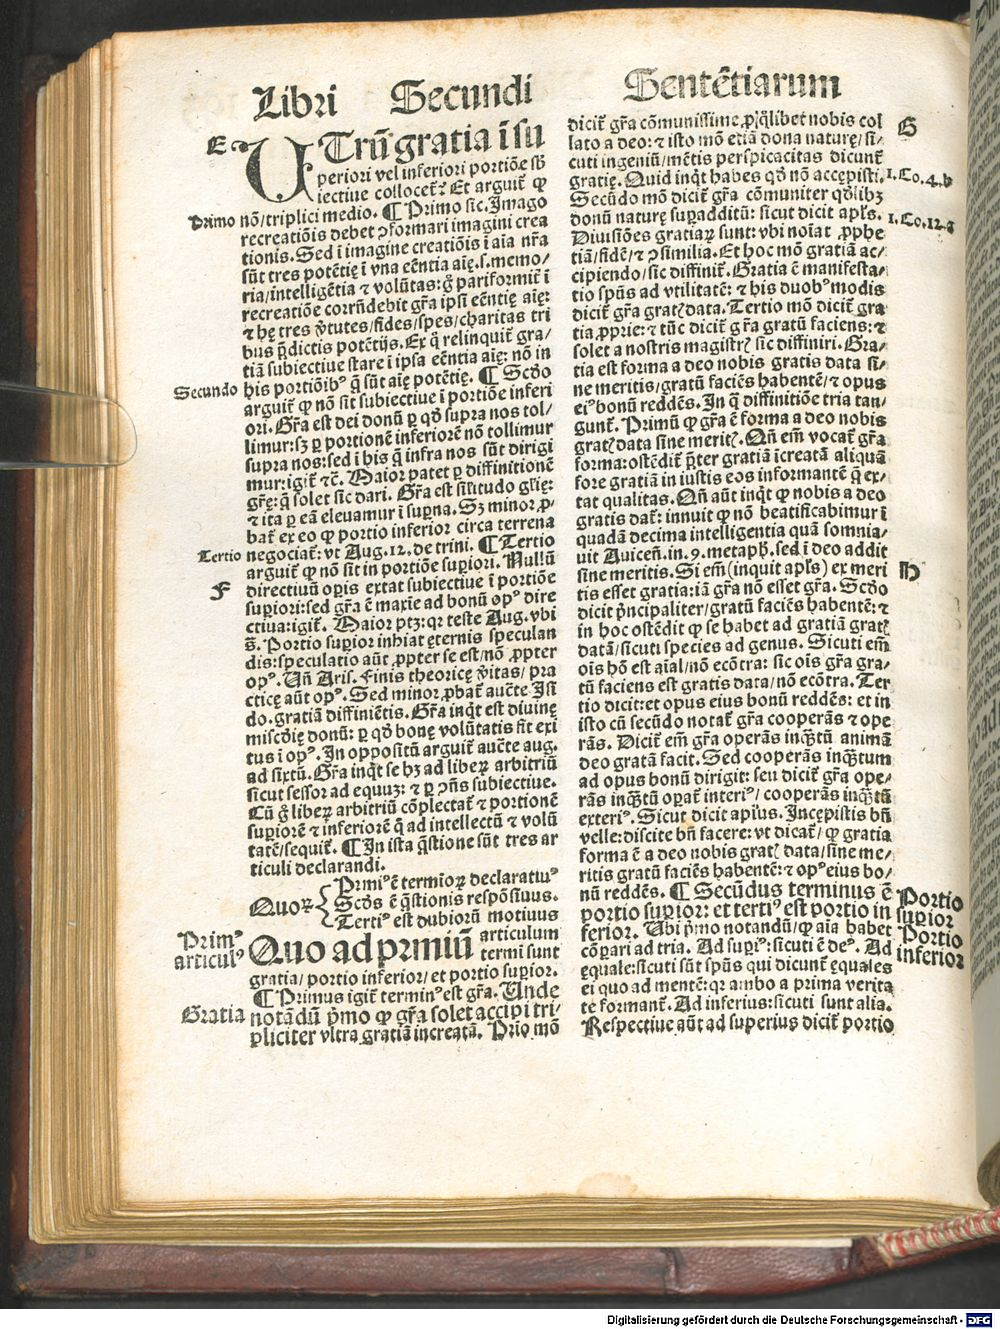 Libri Secundi Sentētiarum
E
UTrū gratia ī su
periori vel inferiori portiōe sb
iectiue collocet? Et arguit̄ ꝙ
Primo nō/triplici medio. ¶ Primo sic. Imago
recreatiōis debet ꝯformari imagini crea
tionis. Sed ī imagine creatiōis ī aīa nr̄a
sūt tres potētię ī vna eēntia aię. s. memo/
ria/intelligētia ⁊ volūtas: g̊ pariformit̄ ī
recreatiōe corrn̄debit gr̄a ipsi eēntię aię:
⁊ hę tres v̄tutes/fides/spes/charitas tri
bus p̄dictis potētijs. Ex q̄ relinquit̄ gra/
tiā subiectiue stare ī ipsa eēntia aię: nō in
Secundo his portiōibꝰ q̄ sūt aię potētię. ¶ Scd̄o
arguit̄ ꝙ nō sit subiectiue ī portiōe inferi
ori. Gr̄a est dei donū ꝑ qd̄ supra nos tol/
limur: sꝫ ꝑ portionē inferiorē nō tollimur
supra nos: sed ī his q̄ infra nos sūt dirigi
mur: igit̄ ⁊c̄. Maior patet ꝑ diffinitionē
gr̄ę: q̄ solet sic dari. Gr̄a est sīlitudo gl̄ię:
⁊ ita ꝑ eā eleuamur ī suꝑna. Sꝫ minor ꝓ/
bat̄ ex eo ꝙ portio inferior circa terrena
Tertio negociat̄: vt Aug. 12. de trini. ¶ Tertio
arguit̄ ꝙ nō sit in portiōe suꝑiori. Nullū
F directiuū oꝑis extat subiectiue ī portiōe
suꝑiori: sed gr̄a ē maxīe ad bonū opꝰ dire
ctiua: igit̄. Maior ptꝫ: qꝛ teste Aug. vbi
s̄. Portio suꝑior inhiat ęternis speculan
dis: speculatio aūt ꝓpter se est/nō ꝓpter
opꝰ. Un̄ Aris. Finis theoricę v̄itas/ pra
cticę aūt opꝰ. Sed minor ꝓbat̄ auc̄te Isi
do. gratiā diffiniētis. Gr̄a inqt̄ est diuinę
misc̄dię donū: ꝑ qd̄ bonę volūtatis fit exi
tus ī opꝰ. In oppositū arguit̄ auc̄te aug.
ad sixtū. Gr̄a inqt̄ se hꝫ ad liberꝝ arbitriū
sicut sessor ad equuꝫ: ⁊ ꝑ ꝯn̄s subiectiue.
Cū g̊ liberꝝ arbitriū cōplectat̄ ⁊ portionē
suꝑiorē ⁊ inferiorē q̄ ad intellectū ⁊ volū
tatē/sequit̄. ¶ In ista q̄stione sūt tres ar
ticuli declarandi.
Quoꝝ
Prmiꝰ ē termioꝝ declaratiuꝰ
Scd̄s ē q̄stionis respōsiuus.
Tertiꝰ est dubiorū motiuus
Primꝰ articulꝰ
Quo ad prmiū articulum
termi sunt
gratia/ portio inferior/ et portio suꝑior.
¶ Primus igit̄ terminꝰ est gr̄a. Unde
Gratia notādū p̄mo ꝙ gr̄a solet accipi tri/
pliciter vltra gratiā increatā. Prīo mō
dicit̄ gr̄a cōmunissime ꝓ qͦlibet nobis col
G
lato a deo: ⁊ isto mō etiā dona naturę/ si/
cuti ingeniū/ mētis perspicacitas dicunt̄
gratię. Quid inqt̄ habes qd̄ nō accępisti. 1. Co. 4. b
Secūdo mō dicit̄ gr̄a cōmuniter qd̄libꝫ
donū naturę suꝑadditū: sicut dicit apl̄s. 1. Co. 12. a
Diuisiōes gratiaꝝ sunt: vbi noīat ꝓphe
tiā/ fidē/ ⁊ ꝯsimilia. Et hoc mō gratiā ac/
cipiendo/ sic diffinit̄. Gratia ē manifesta/
tio spūs ad vtilitatē: ⁊ his duobꝰ modis
dicit̄ gr̄a gratꝭ data. Tertio mō dicit̄ gra
tia ꝓprie: ⁊ tūc dicit̄ gr̄a gratū faciens: ⁊
solet a nostris magistrꝭ sic diffiniri. Gra/
tia est forma a deo nobis gratis data si/
ne meritis/ gratū faciēs habentē/ ⁊ opus
eiꝰ bonū reddēs. In q̄ diffinitiōe tria tan/
gunt̄. Primū ꝙ gr̄a ē forma a deo nobis
gratꝭ data sine meritꝭ. Qn̄ em̄ vocat̄ gr̄a
forma: ostēdit̄ p̄ter gratiā īcreatā aliquā
fore gratiā in iustis eos informantē q̄ ex/
tat qualitas. Qn̄ aūt inqt̄ ꝙ nobis a deo
gratis dat̄: innuit ꝙ nō beatificabimur ī
quadā decima intelligentia quā somnia/
uit Auiceñ. in. 9. metaph̄. sed ī deo addit
sine meritis. Si em̄ (inquit apl̄s) ex meri
H
tis esset gratia: iā gr̄a nō esset gr̄a. Scd̄o
dicit p̄ncipaliter/ gratū faciēs habentē: ⁊
in hoc ostēdit ꝙ se habet ad gratiā gratꝭ
datā/ sicuti species ad genus. Sicuti em̄
oīs hō est aīal/ nō ecōtra: sic oīs gr̄a gra/
tū faciens est gratis data/ nō ecōtra. Ter
tio dicit: et opus eius bonū reddēs: et in
isto cū secūdo notat̄ gr̄a cooperās ⁊ ope
rās. Dicit̄ em̄ gr̄a operās inqͣtū animā
deo gratā facit. Sed cooperās inqͣtum
ad opus bonū dirigit: seu dicit̄ gr̄a ope/
rās inqͣtū oꝑat̄ interiꝰ/ cooperās inqͣtū
exteriꝰ. Sicut dicit aplūs. Incępistis bn̄
velle: discite bn̄ facere: vt dicat̄/ ꝙ gratia
forma ē a deo nobis gratꝭ data/ sine me/
ritis gratū faciēs habentē: ⁊ opꝰ eius bo/
nū reddēs. ¶ Secūdus terminus ē Portio
portio suꝑior: et tertiꝰ est portio in suꝑior
ferior. Ubi p̄mo notandū/ ꝙ aīa habet Portio
cōꝑari ad tria. Ad suꝑiꝰ: sicuti ē deꝰ. Ad inferior
ęquale: sicuti sūt spūs qui dicunt̄ ęquales
ei quo ad mentē: qꝛ ambo a prima verita
te formant̄. Ad inferius: sicuti sunt alia.
Respectiue aūt ad superius dicit̄ portio
Digitalisierung gefördert durch die Deutsche Forschungsgemeinschaft - DFG